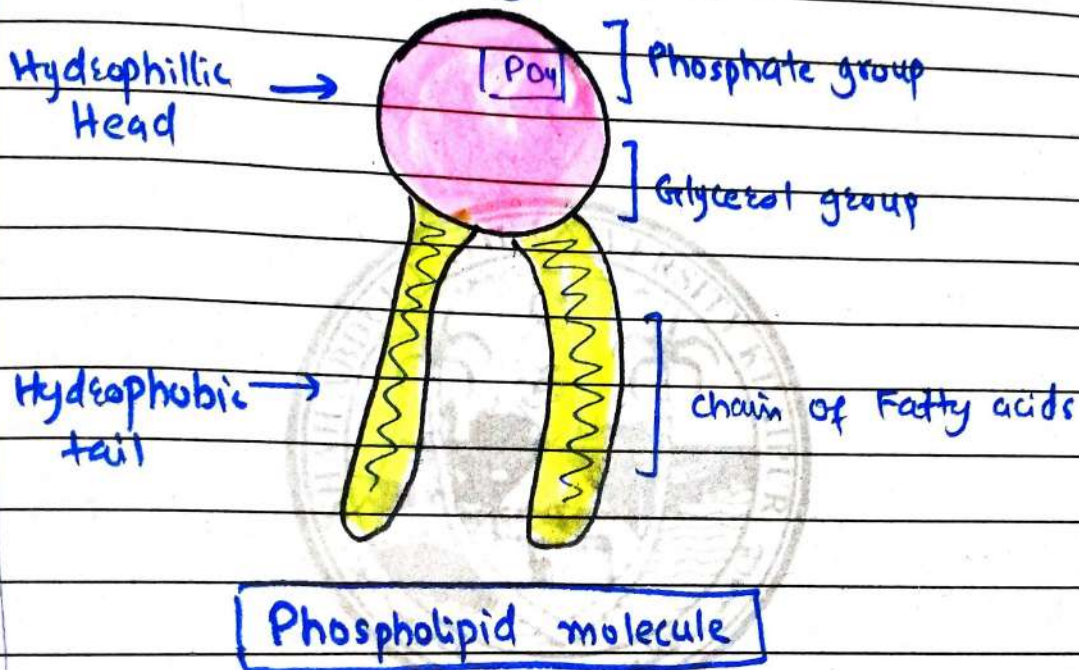 Hydrophillic
Head
PO4
Phosphate group
Glycerol group
Hydrophobic
tail
chain of Fatty acids
Phospholipid molecule